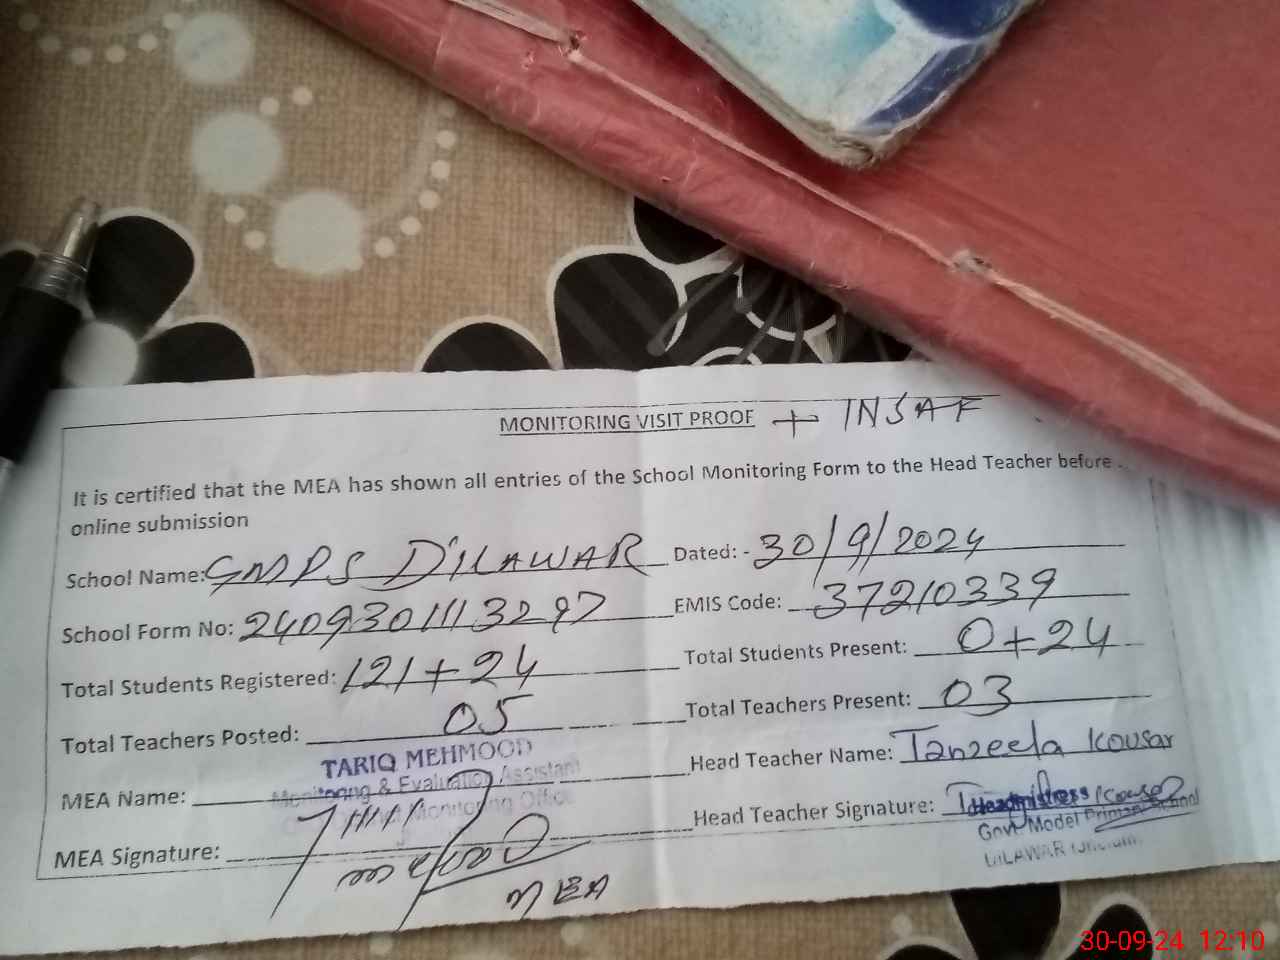 MONITORING VISIT PROOF + INSAF
It is certified that the MEA has shown all entries of the School Monitoring Form to the Head Teacher before
online submission
School Name: GMPS DILAWAR Dated: - 30/9/2024
School Form No: 2409301113297 EMIS Code: 37210339
Total Students Registered: 121+24 Total Students Present: 0+24
Total Teachers Posted: 05 Total Teachers Present: 03
TARIQ MEHMOOD
Monitoring & Evaluation Assistant
MEA Name: Head Teacher Name: Tanzeela Kousar
Monitoring Office
MEA Signature: Head Teacher Signature:
Headmistress
Govt Model Primary School
DILAWAR
MEA
30-09-24 12:10